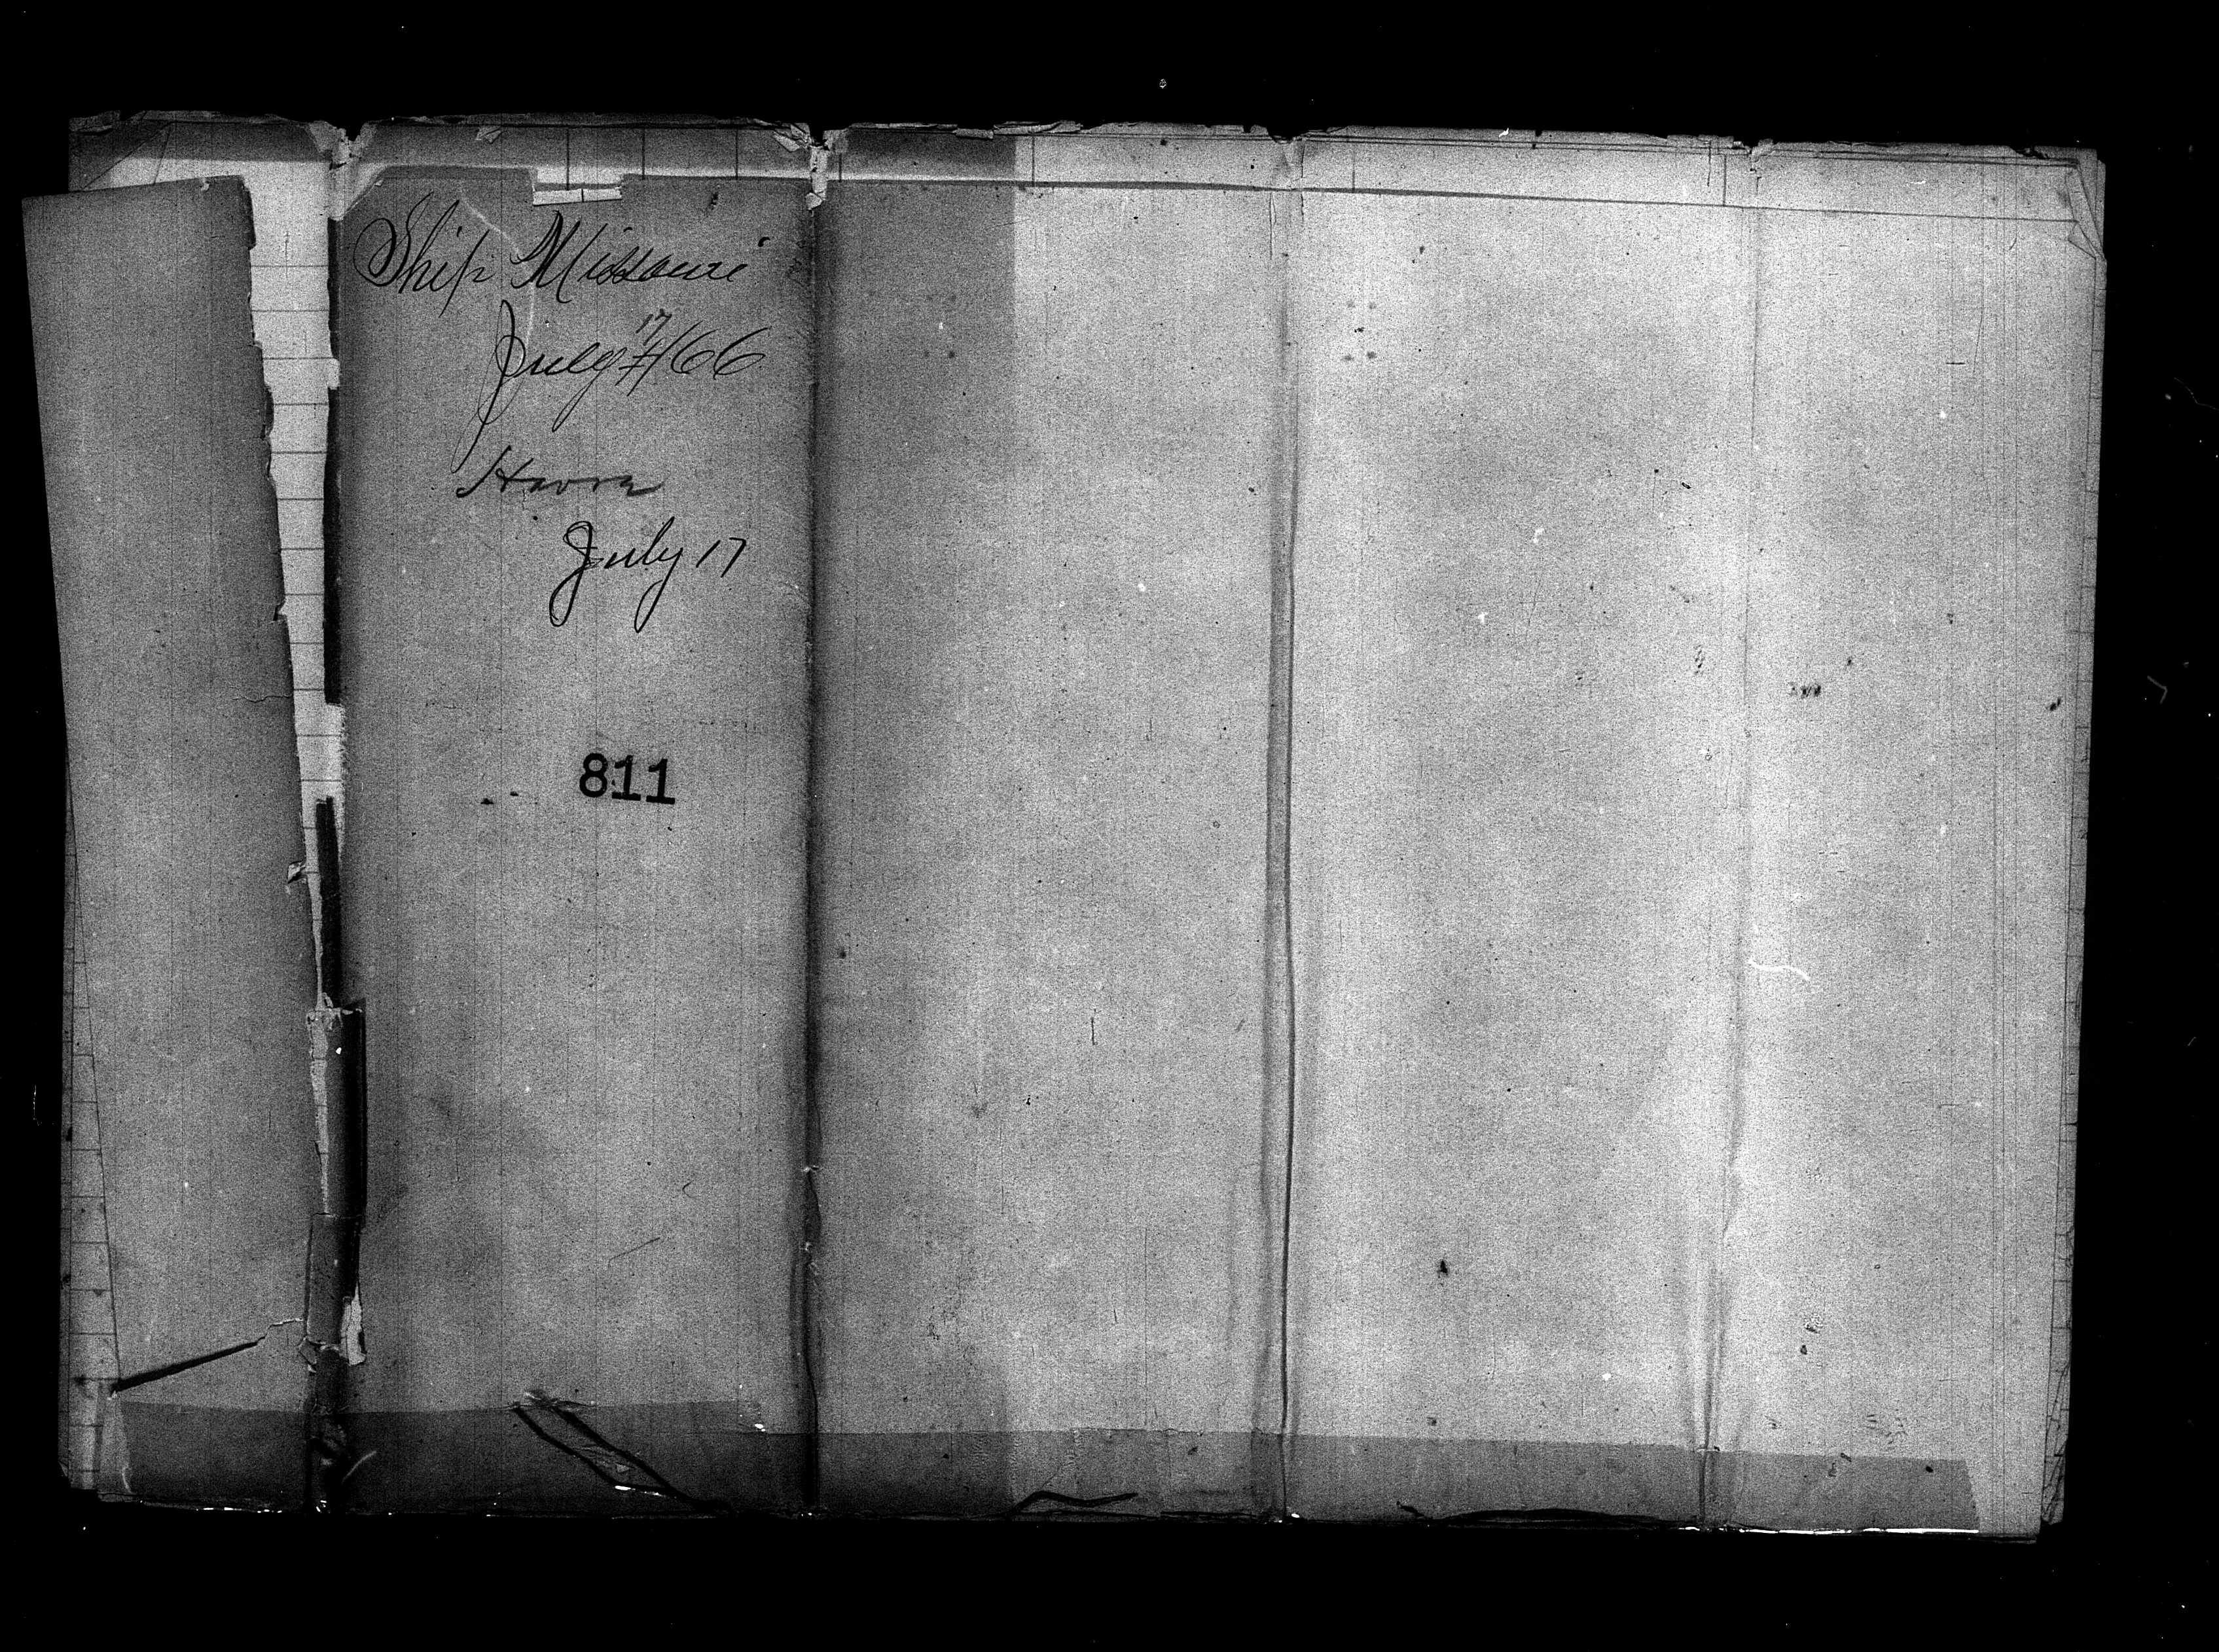 Ship Missouri
July 17/66
Havre
July 17
811